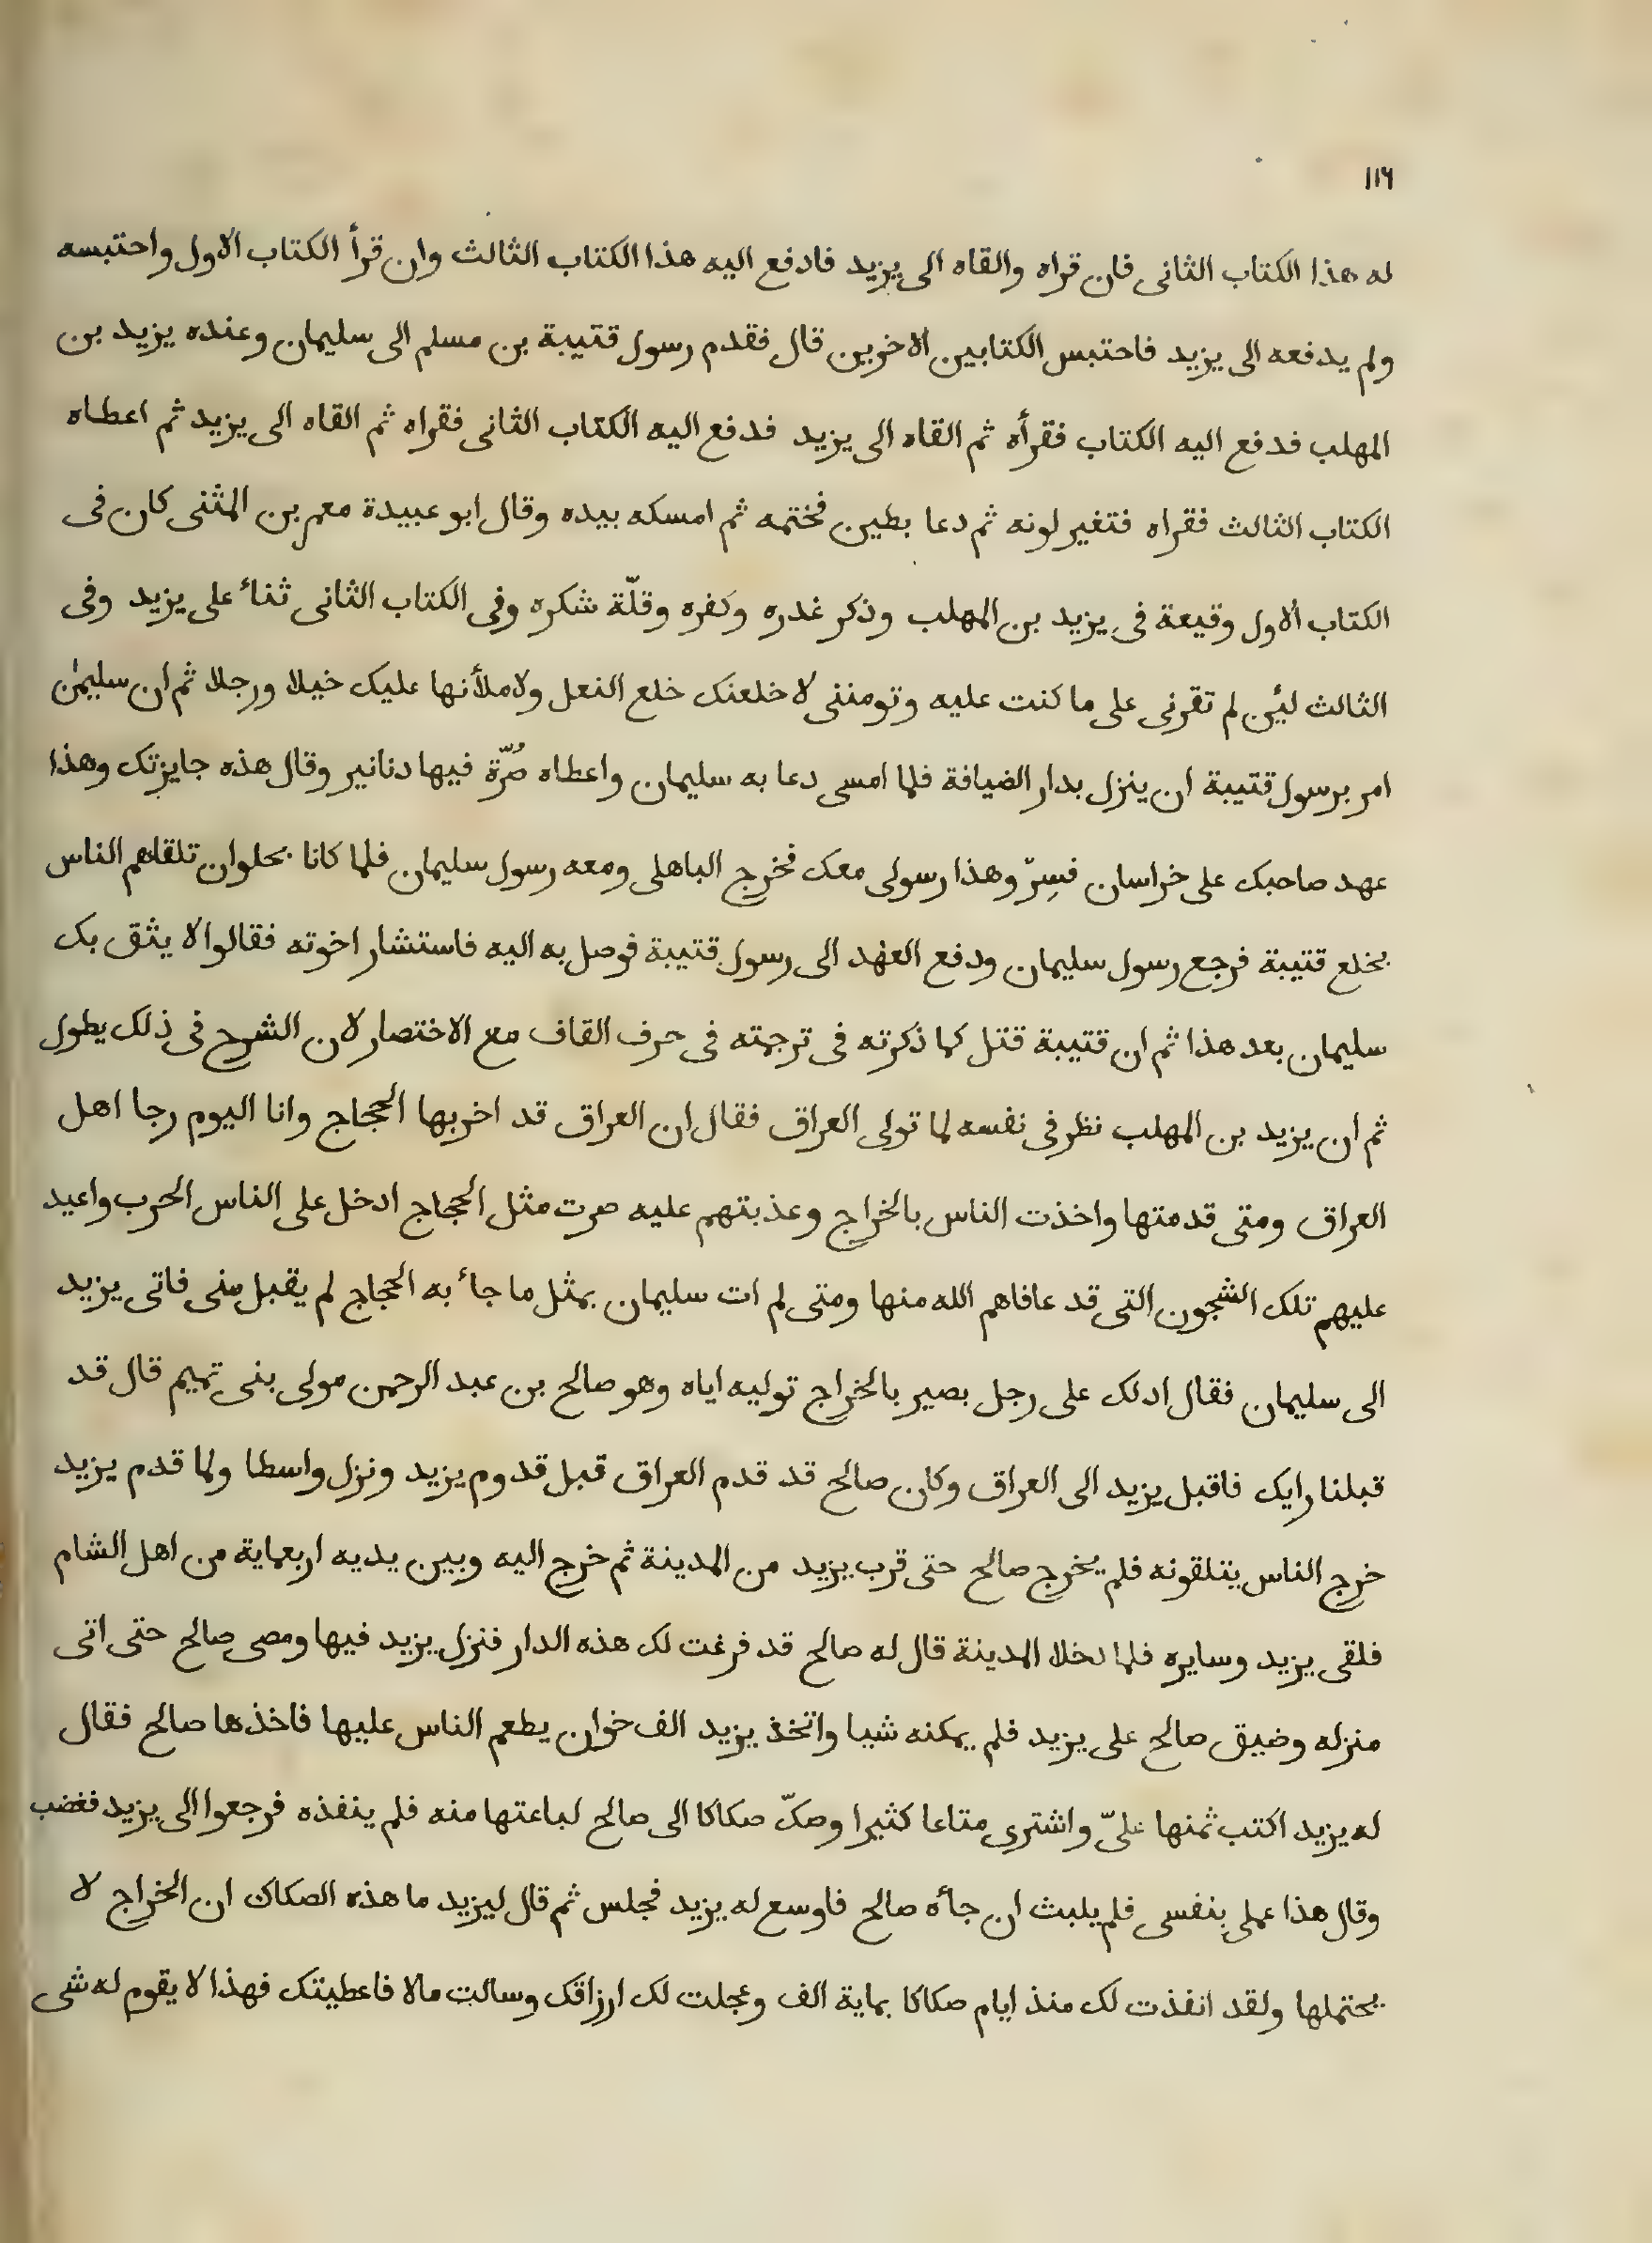 ١١٦
له هذا الكتاب الثانى فان قراه والقاه الى يزيد فادفع اليه هذا الكتاب الثالث وان قرأ الكتاب الاول واحتبسه
ولم يدفعه الى يزيد فاحتبس الكتابين الاخرين قال فقدم رسول قتيبة بن مسلم الى سليمان وعنده يزيد بن
المهلب فدفع اليه الكتاب فقرأه ثم القاه الى يزيد فدفع اليه الكتاب الثانى فقراه ثم القاه الى يزيد ثم اعطاه
الكتاب الثالث فقراه فتغير لونه ثم دعا بطين فختمه ثم امسكه بيده وقال ابو عبيدة معمر بن المثنى كان فى
الكتاب الاول وقيعة فى يزيد بن المهلب وذكر غدره وكفره وقلّة شكره وفى الكتاب الثانى ثناء على يزيد وفى
الثالث لئن لم تقرنى على ما كنت عليه وتومننى لاخلعنك خلع النعل ولاملأنها عليك خيلا ورجلا ثم ان سليمٰن
امر برسول قتيبة ان ينزل بدار الضيافة فلما امسى دعا به سليمان واعطاه صُرّة فيها دنانير وقال هذه جايزتك وهذا
عهد صاحبك على خراسان فسِرّ وهذا رسولى معك فخرج الباهلى ومعه رسول سليمان فلما كانا بحلوان تلقاهم الناس
بخلع قتيبة فرجع رسول سليمان ودفع العهد الى رسول قتيبة فوصل به اليه فاستشار اخوته فقالوا لا يثق بك
سليمان بعد هذا ثم ان قتيبة قتل كما ذكرته فى ترجمته فى حرف القاف مع الاختصار لان الشرح فى ذلك يطول
ثم ان يزيد بن المهلب نظر فى نفسه لما تولى العراق فقال ان العراق قد اخربها الحجاج وانا اليوم رجا اهل
العراق ومتى قدمتها واخذت الناس بالخراج وعذبتهم عليه صرت مثل الحجاج ادخل على الناس الحرب واعيد
عليهم تلك الشجون التى قد عافاهم الله منها ومتى لم ات سليمان بمثل ما جاء به الحجاج لم يقبل منى فاتى يزيد
الى سليمان فقال ادلك على رجل بصير بالخراج توليه اياه وهو صالح بن عبد الرحمن مولى بنى تميم قال قد
قبلنا رايك فاقبل يزيد الى العراق وكان صالح قد قدم العراق قبل قدوم يزيد ونزل واسطا ولما قدم يزيد
خرج الناس يتلقونه فلم يخرج صالح حتى قرب يزيد من المدينة ثم خرج اليه وبين يديه اربعماية من اهل الشام
فلقى يزيد وسايره فلما دخلا المدينة قال له صالح قد فرغت لك هذه الدار فنزل يزيد فيها ومضى صالح حتى اتى
منزله وضيق صالح على يزيد فلم يمكنه شيا واتخذ يزيد الف خوان يطعم الناس عليها فاخذها صالح فقال
له يزيد اكتب ثمنها علىّ واشترى متاعا كثيرا وصكّ صكاكا الى صالح لباعتها منه فلم ينفذه فرجعوا الى يزيد فغضب
وقال هذا عملى بنفسى فلم يلبث ان جأه صالح فاوسع له يزيد فجلس ثم قال ليزيد ما هذه الصكاك ان الخراج لا
يحتملها ولقد انفذت لك منذ ايام صكاكا بماية الف وعجلت لك ارزاقك وسالت مالا فاعطيتك فهذا لا يقوم له شى